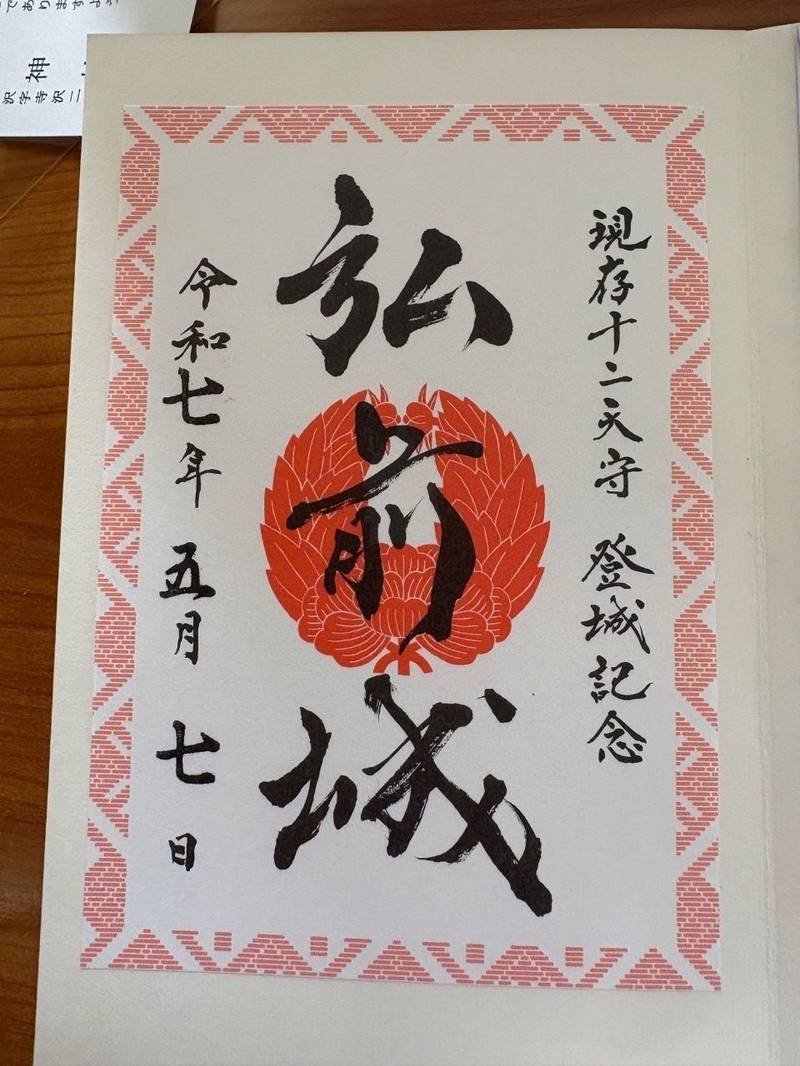 現存十二天守 登城記念
弘前城
令和七年 五月 七日
神